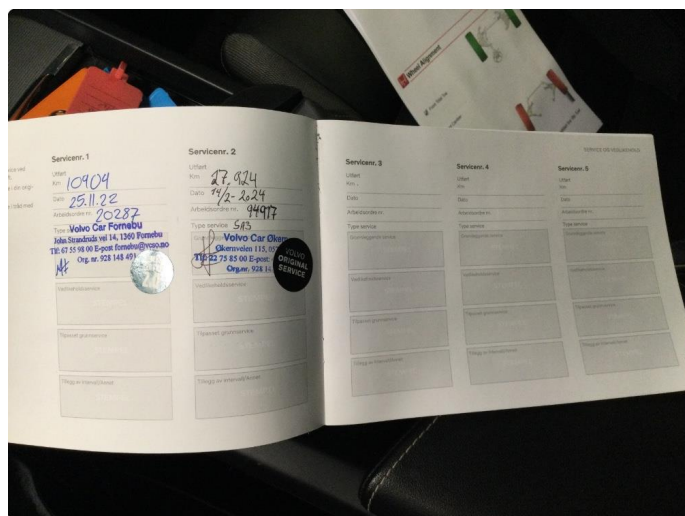 Wheel Alignment
SERVICE OG VEDLIKEHOLD
Servicenr. 1
Utført
Km. 10904
Dato 25.11.22
Arbeidsordre nr. 20287
Type
Volvo Car Fornebu
John Strandruds vei 14, 1360 Fornebu
Tlf: 67 55 98 00 E-post fornebu@vcso.no
Org. nr. 928 148 491
Vedlikeholdsservice
Tilpasset grunnservice
Tillegg av intervallpunkt
Servicenr. 2
Utført
Km. 27.924
Dato 14/2-2024
Arbeidsordre nr. 94917
Type service SA3
Volvo Car Økern
Økernveien 115, 05
Tlf: 22 75 85 00 E-post:
Org.nr. 928 14
VOLVO
ORIGINAL
SERVICE
Vedlikeholdsservice
Tilpasset grunnservice
Tillegg av intervallpunkt
Servicenr. 3
Utført
Km.
Dato
Arbeidsordre nr.
Type service
Grunnleggende service
Vedlikeholdsservice
Tilpasset grunnservice
Tillegg av intervallpunkt
Servicenr. 4
Utført
Km.
Dato
Arbeidsordre nr.
Type service
Grunnleggende service
Vedlikeholdsservice
Tilpasset grunnservice
Tillegg av intervallpunkt
Servicenr. 5
Utført
Km.
Dato
Arbeidsordre nr.
Type service
Grunnleggende service
Vedlikeholdsservice
Tilpasset grunnservice
Tillegg av intervallpunkt